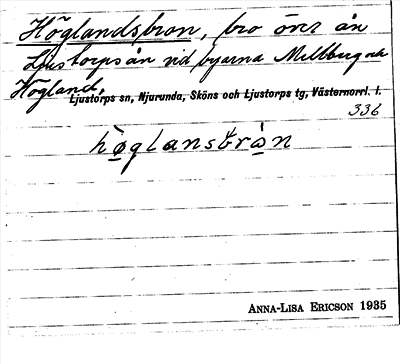 Höglandsbron, bro över ån
Ljustorpsån vid byarna Mellberg och
Högland.
Ljustorps sn, Njurunda, Sköns och Ljustorps tg, Västernorrl. l.
336
høglansbrån
ANNA-LISA ERICSON 1935